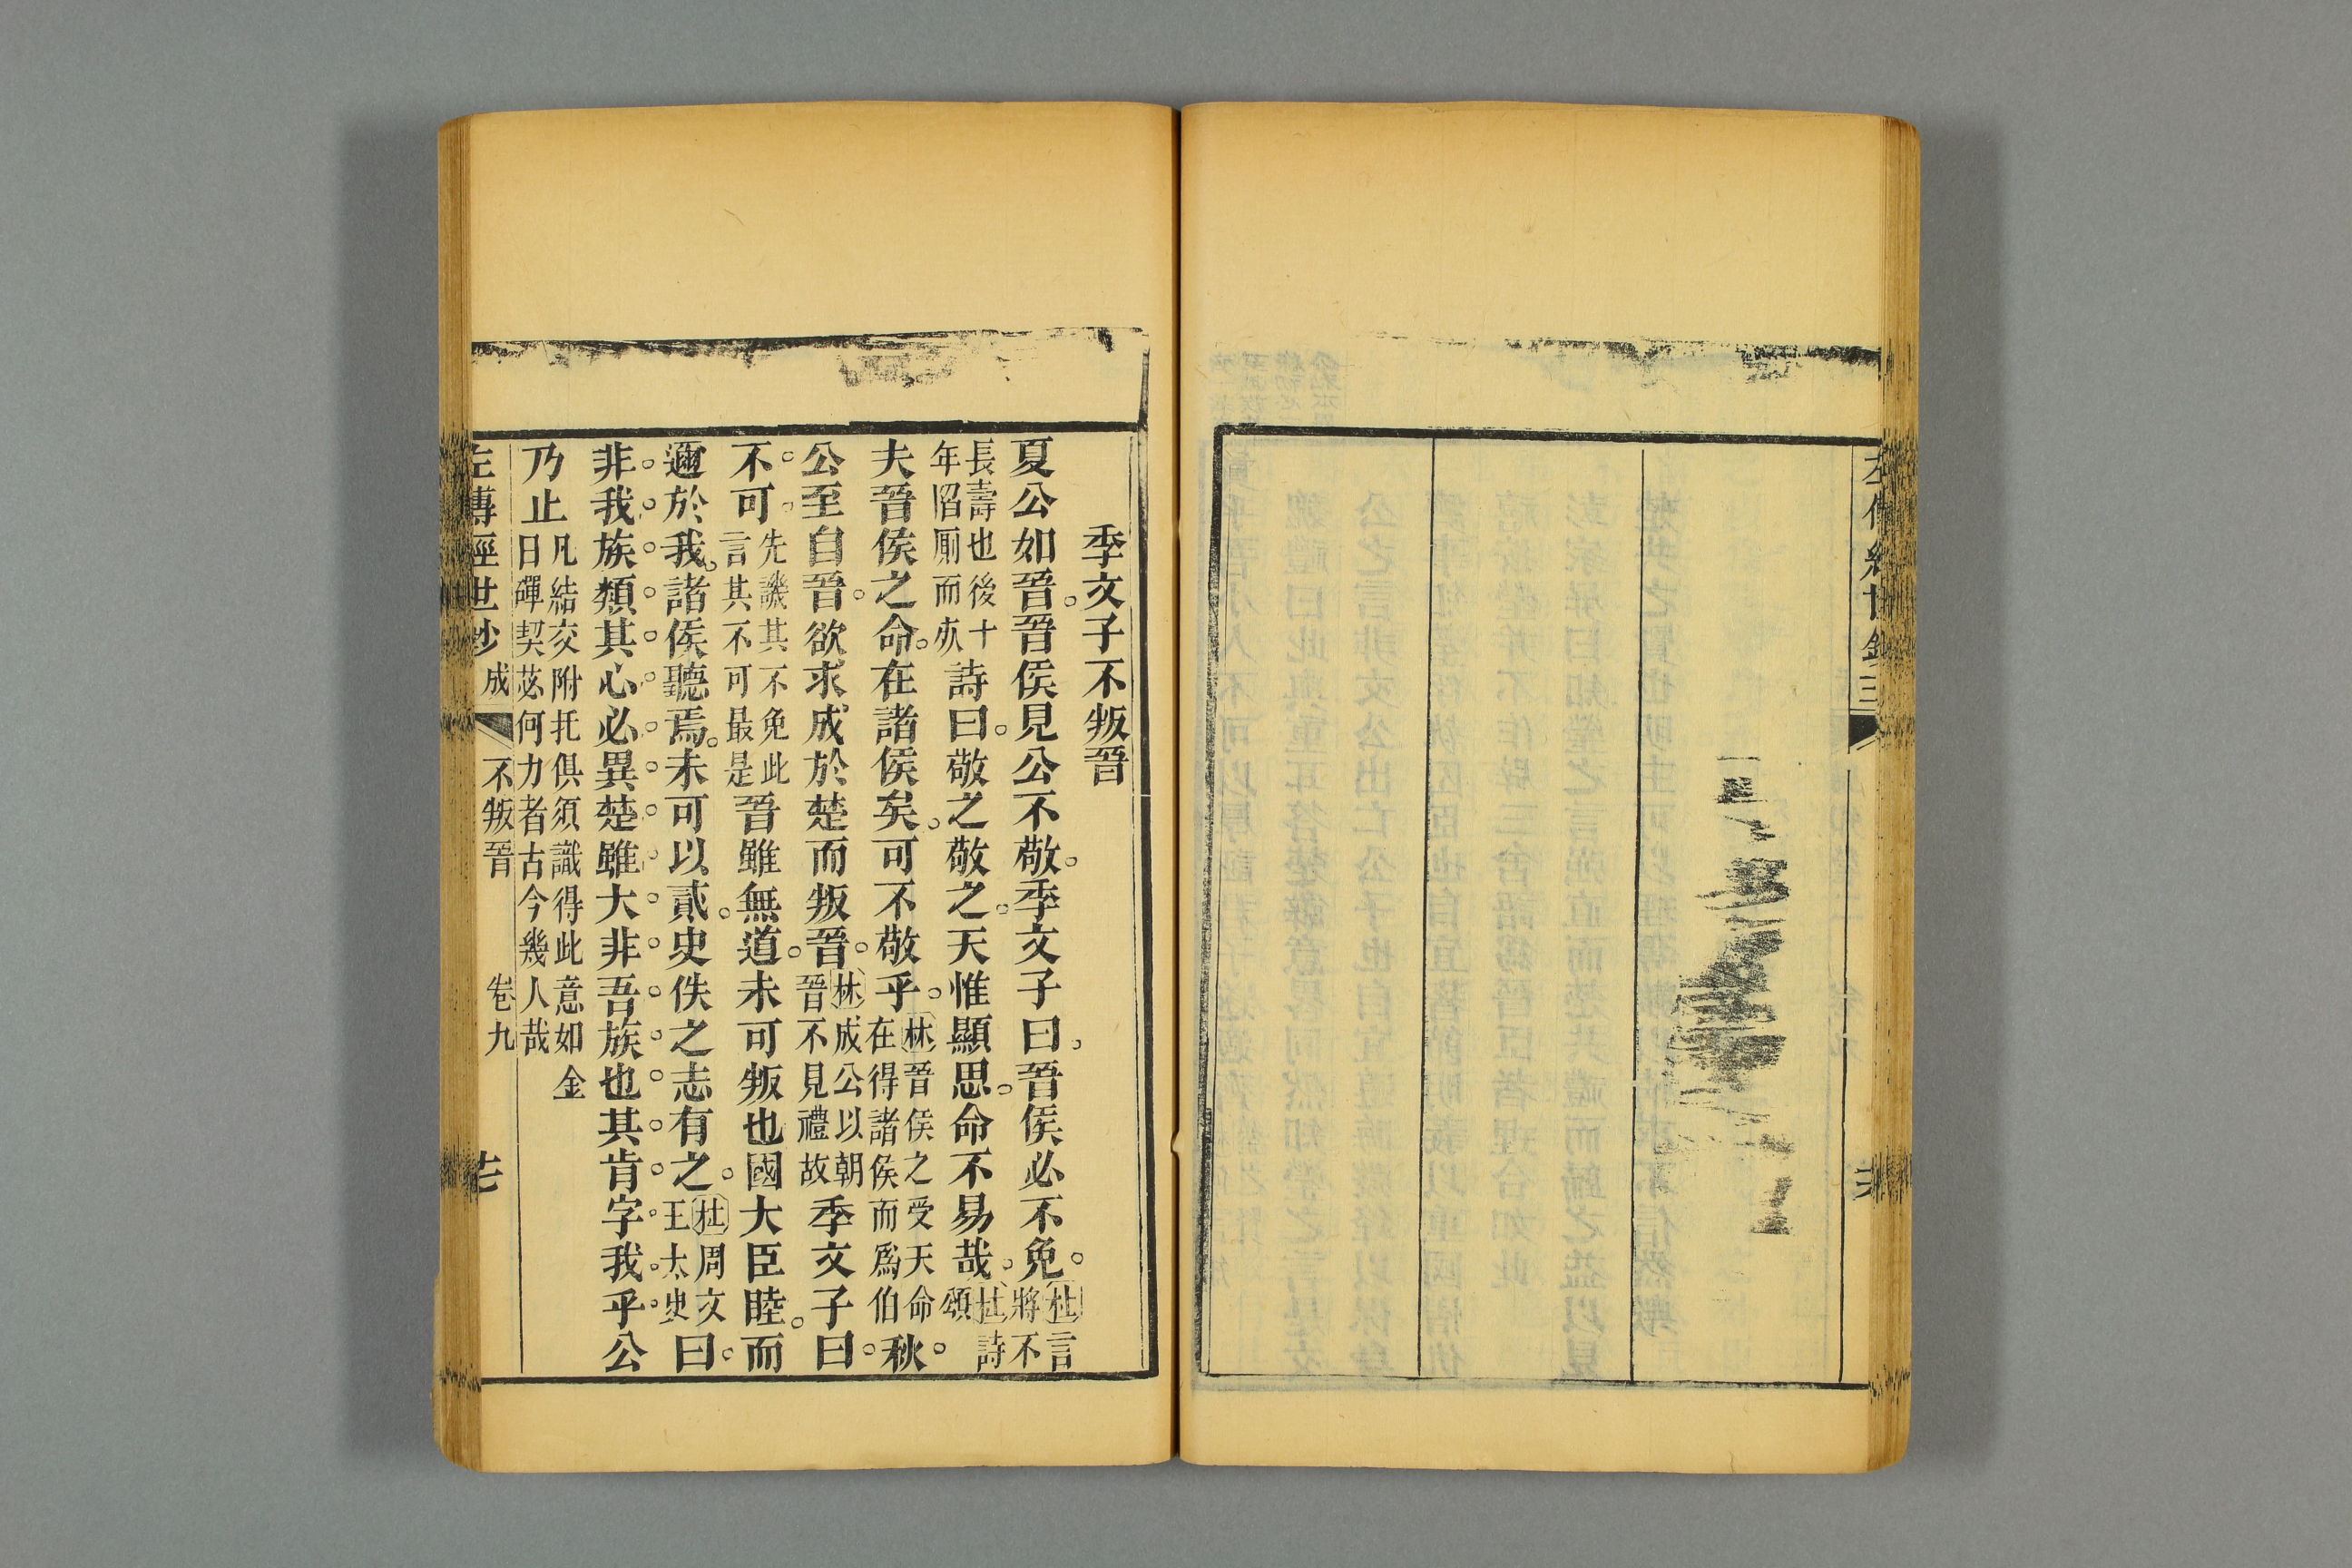 季文子不叛晉
夏公如晉晉侯見公不敬季文子曰晉侯必不免杜言將不
長壽也後十年陷厠而死詩曰敬之敬之天惟顯思命不易哉杜詩頌
夫晉侯之命在諸侯矣可不敬乎林晉侯之受天命在得諸侯而爲伯秋
公至自晉欲求成於楚而叛晉林成公以朝晉不見禮故季文子曰
不可先譏其不免此言其不可最是晉雖無道未可叛也國大臣睦而
邇於我諸侯聽焉未可以貳史佚之志有之杜周文王太史曰
非我族類其心必異楚雖大非吾族也其肯字我乎公
乃止凡結交附托俱須識得此意如金日磾契苾何力者古今幾人哉
左傳經世鈔 成 不叛晉 卷九